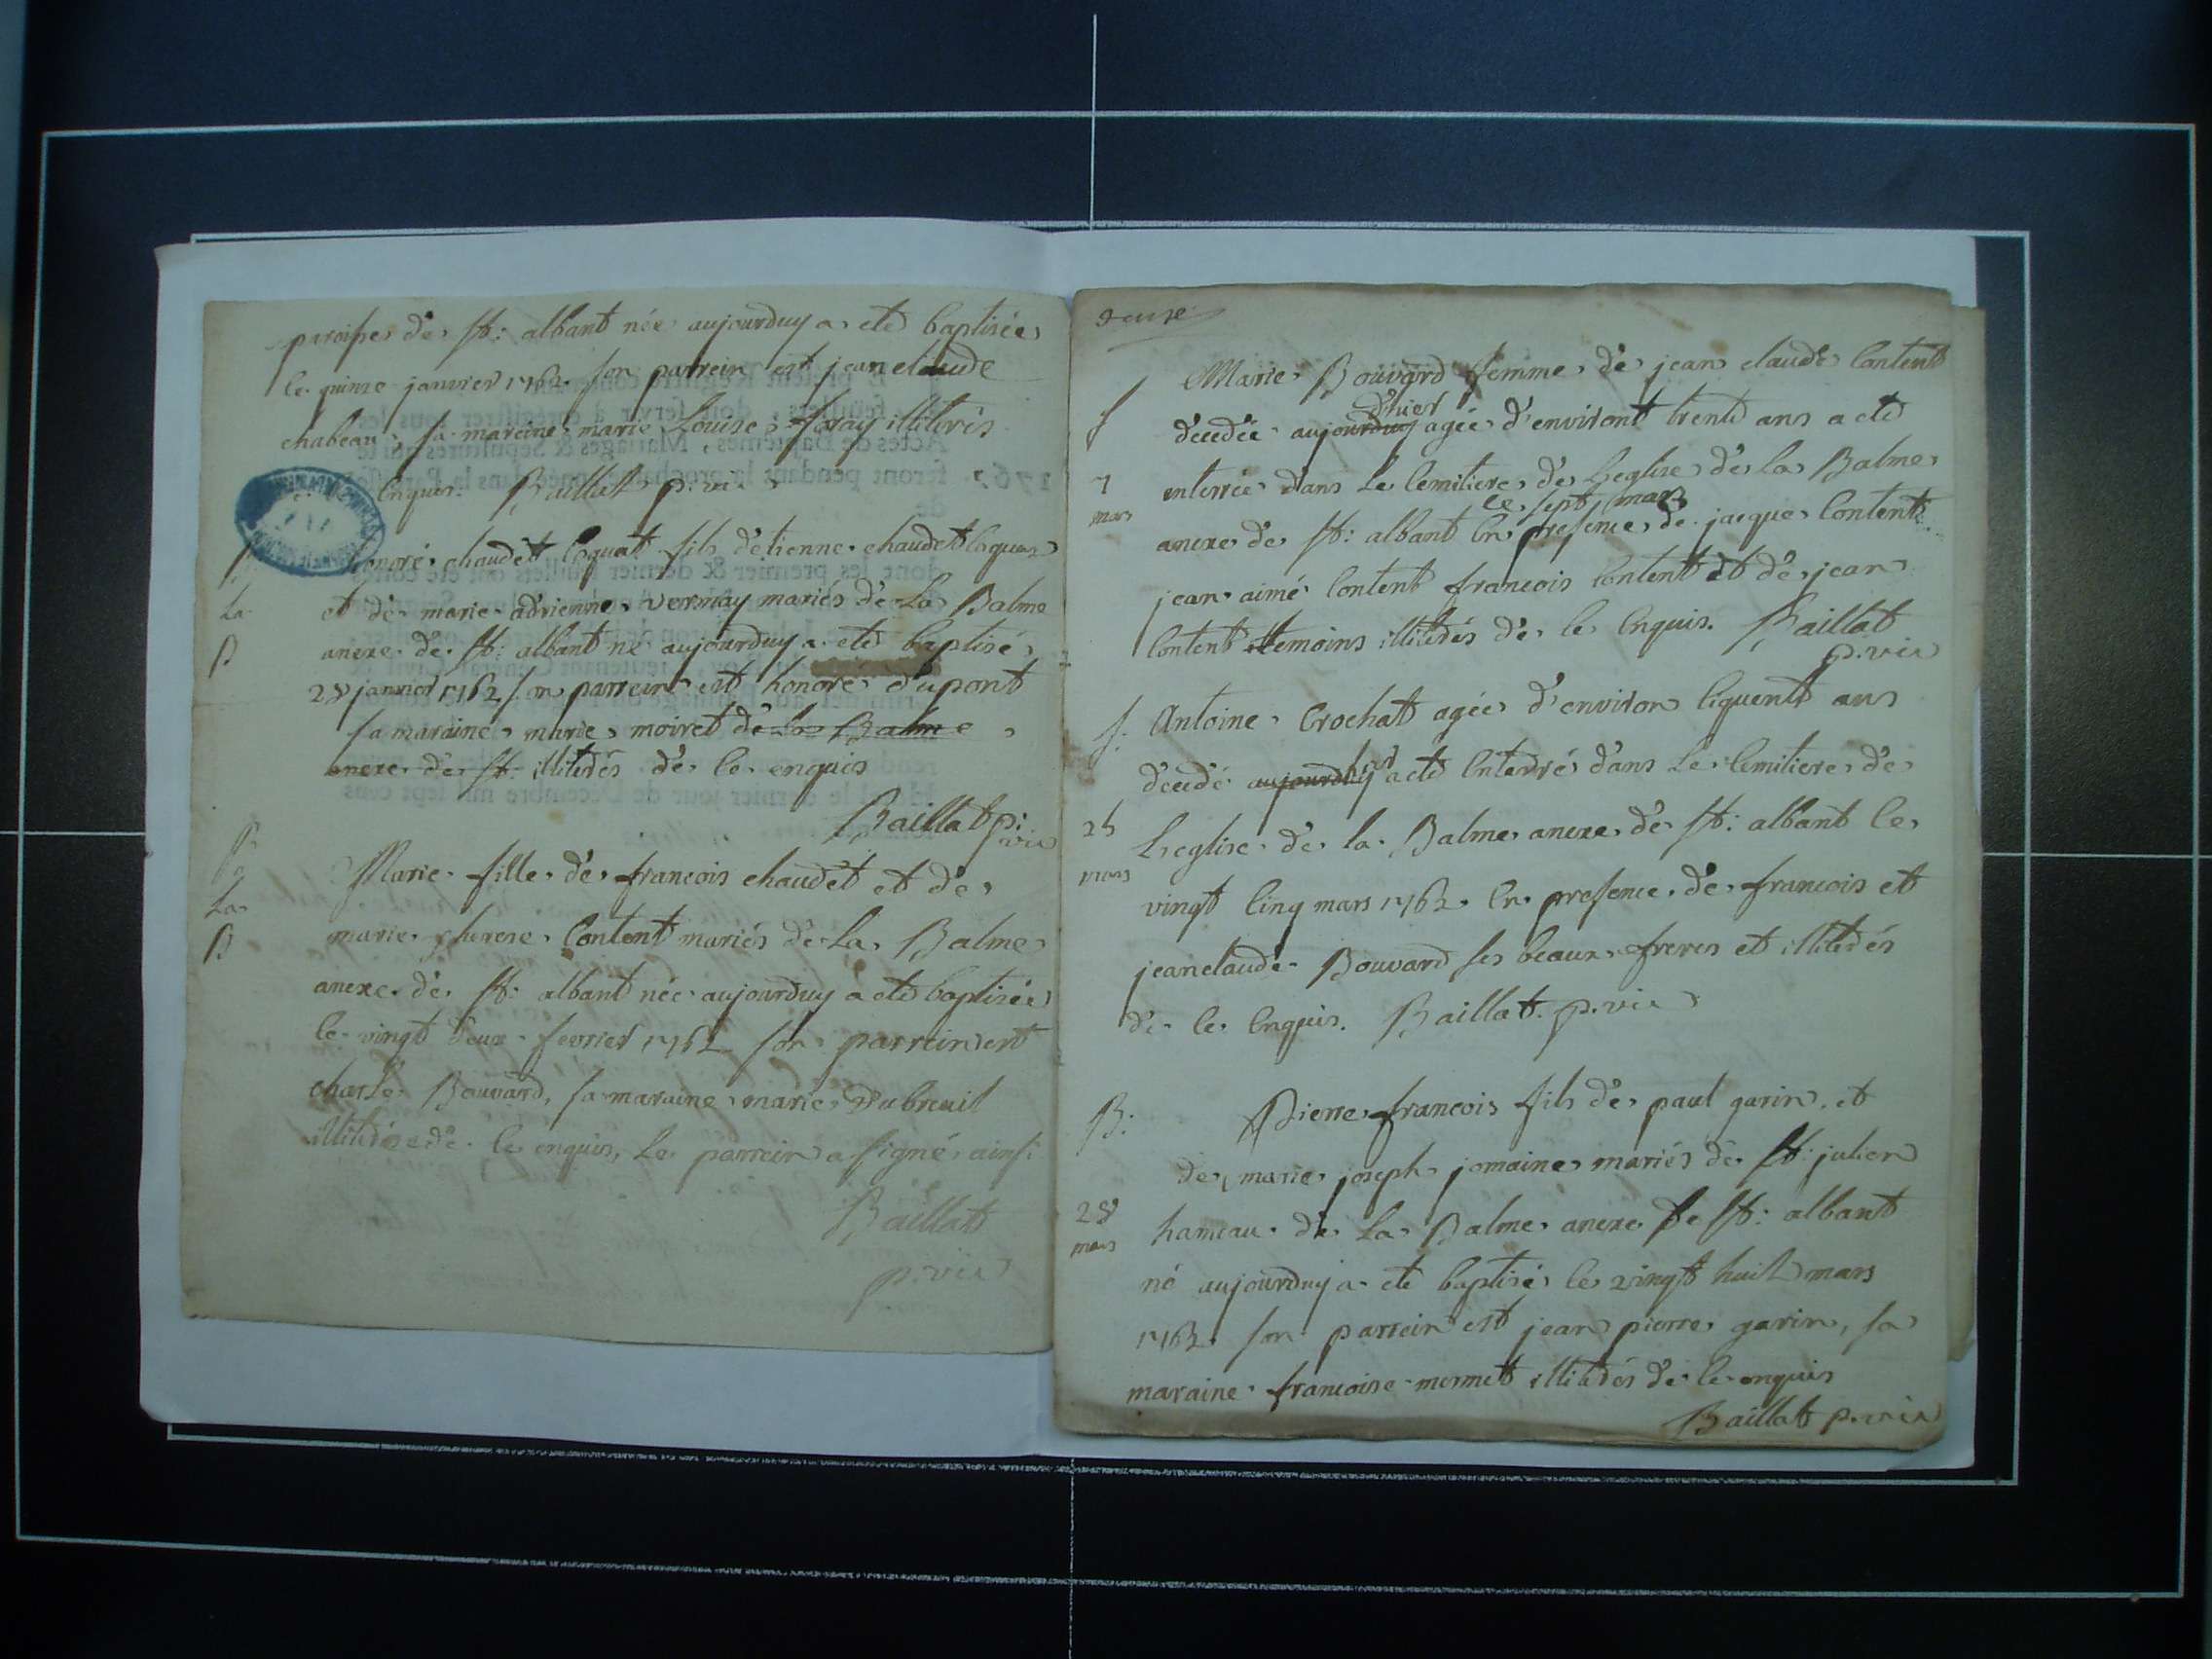 paroisse de St: albant née aujourduy a eté baptisée
le quinze janvier 1762 son parrein est jean claude
chabeau, sa mareine marie Louise foray illiterés
Enquis. Baillat p. vic
honoré chaudet Coquat fils d'etienne chaudet Coquaz
La
et de marie adrienne vernay mariés de La Balme
B
anexe de St: albant né aujourduy a eté baptisé
28 janvier 1762 son parrein est honoré dupont
sa maraine marie moiret de La Balme
anexe de St: illiterés de ce enquis
Baillat p: vic
Marie fille de francois chaudet et de
La
B
marie therese Content mariés de La Balme
anexe de St: albant née aujourduy a eté baptisée
le vingt deux fevrier 1762 son parrein est
charle Bouvard, sa maraine marie Dubreuil
illiterée de ce enquis, Le parrein a signé ainsi
Baillat
p. vic
deuxe
Marie Bouvard femme de jean claude Content
f
decedée aujourduy d'hier agée d'environt trente ans a eté
7
mars
enterrée dans Le Cemitiere de Leglise de La Balme
le sept mars
anexe de St: albant En presence de jacque Content
jean aimé Content francois Content et de jean
Content temoins illiterés de ce Enquis. Baillat
p. vic
f.
Antoine Crochat agée d'environ Ciquente ans
decedé aujourduy hier a eté Enterré dans Le Cemitiere de
25
mars
Leglise de la Balme anexe de St: albant le
vingt Cinq mars 1762. En presence de francois et
jeanclaude Bouvard ses beaux freres et illiterés
de ce Enquis. Baillat. p. vic
B:
Pierre francois fils de paul garin, et
de marie joseph jomaine mariés de St: julien
28
mars
hameau de La Balme anexe de St: albant
né aujourduy a eté baptisé le vingt huit mars
1762. son parrein est jean pierre garin, sa
maraine francoise mermet illiterés de ce enquis
Baillat p. vic